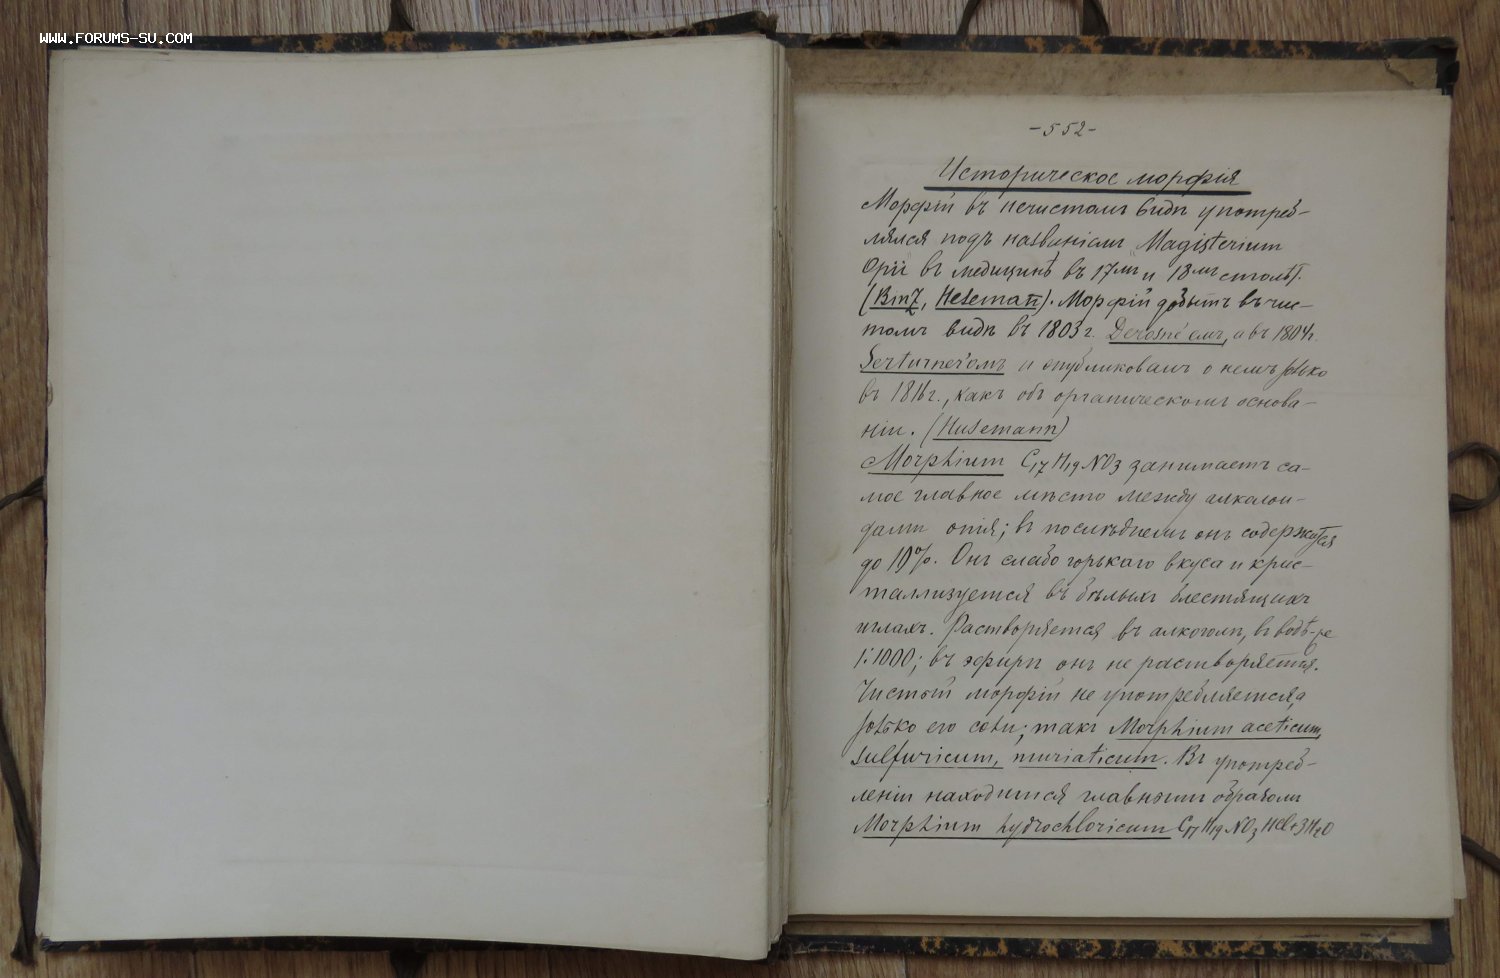 WWW.FORUMS-SU.COM
-552-
Историческое морфія
Морфій въ нечистомъ видѣ употреб-
лялся подъ названіемъ Magisterium
Opii въ медицинѣ въ 17мъ и 18мъ столѣт.
(Binz, Husemann). Морфій добытъ въ чис-
томъ видѣ въ 1803 г. Derosne'емъ, а въ 1804 г.
Serturner'омъ и опубликовалъ о немъ только
въ 1816 г., какъ объ органическомъ основа-
ніи. (Husemann)
Morphium C17H19NO3 занимаетъ са-
мое главное мѣсто между алкалои-
дами опія; въ послѣднемъ онъ содержится
до 10%. Онъ слабо горькаго вкуса и крис-
таллизуется въ бѣлыхъ блестящихъ
иглахъ. Растворяется въ алкоголѣ, въ водѣ-же
1:1000; въ эфирѣ онъ не растворяется.
Чистый морфій не употребляется, а
только его соли; такъ Morphium aceticum,
sulfuricum, muriaticum. Въ употреб-
леніи находится главнымъ образомъ
Morphium hydrochloricum C17H19NO3HCl+3H2O